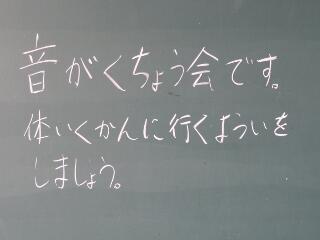 音がくちょう会です。
体いくかんに行くよういを
しましょう。